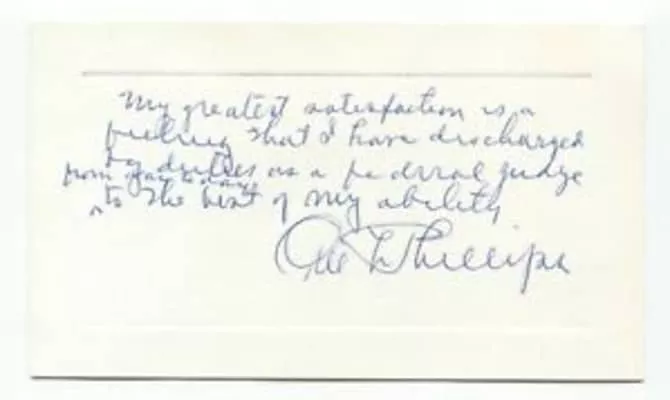 My greatest satisfaction is a
feeling that I have discharged
my duties as a federal judge
from day to day
to the best of my ability
Orie L Phillips